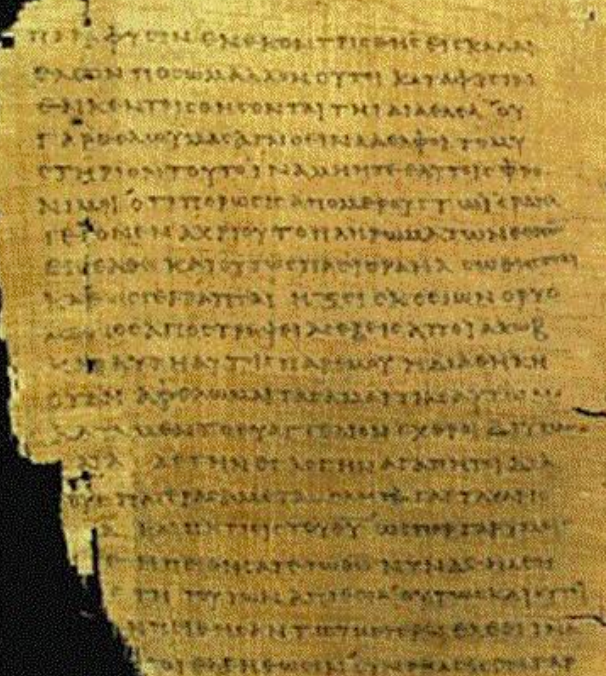 ΠΑΡΑ ΦΥΣΙΝ ΕΝΕΚΕΝΤΡΙΣΘΗΣ ΕΙΣ ΚΑΛΛΙ
ΕΛΑΙΟΝ ΠΟΣΩ ΜΑΛΛΟΝ ΟΥΤΟΙ ΚΑΤΑ ΦΥΣΙΝ
ΕΝΚΕΝΤΡΙΣΘΗΣΟΝΤΑΙ ΤΗ ΙΔΙΑ ΕΛΑΙΑ ΟΥ
ΓΑΡ ΘΕΛΩ ΥΜΑΣ ΑΓΝΟΕΙΝ ΑΔΕΛΦΟΙ ΤΟ ΜΥ
ΣΤΗΡΙΟΝ ΤΟΥΤΟ ΙΝΑ ΜΗ ΗΤΕ ΕΑΥΤΟΙΣ ΦΡΟ
ΝΙΜΟΙ ΟΤΙ ΠΩΡΩΣΙΣ ΑΠΟ ΜΕΡΟΥΣ ΤΩ ΙΣΡΑΗΛ
ΓΕΓΟΝΕΝ ΑΧΡΙ ΟΥ ΤΟ ΠΛΗΡΩΜΑ ΤΩΝ ΕΘΝΩΝ
ΕΙΣΕΛΘΗ ΚΑΙ ΟΥΤΩΣ ΠΑΣ ΙΣΡΑΗΛ ΣΩΘΗΣΕΤΑΙ
ΚΑΘΩΣ ΓΕΓΡΑΠΤΑΙ ΗΞΕΙ ΕΚ ΣΕΙΩΝ Ο ΡΥΟ
ΜΕΝΟΣ ΑΠΟΣΤΡΕΨΕΙ ΑΣΕΒΕΙΑΣ ΑΠΟ ΙΑΚΩΒ
ΚΑΙ ΑΥΤΗ ΑΥΤΟΙΣ Η ΠΑΡ ΕΜΟΥ ΔΙΑΘΗΚΗ
ΟΤΑΝ ΑΦΕΛΩΜΑΙ ΤΑΣ ΑΜΑΡΤΙΑΣ ΑΥΤΩΝ
ΜΕΝ ΤΟ ΕΥΑΓΓΕΛΙΟΝ ΕΧΘΡΟΙ ΔΙ
ΔΕ ΤΗΝ ΕΚΛΟΓΗΝ ΑΓΑΠΗΤΟΙ ΔΙΑ
ΠΑΤΕΡΑΣ ΑΜΕΤΑΜΕΛΗΤΑ ΓΑΡ ΤΑ
ΚΑΙ Η ΚΛΗΣΙΣ ΤΟΥ ΘΥ ΩΣΠΕΡ ΓΑΡ ΥΜΕΙΣ
ΗΠΕΙΘΗΣΑΤΕ ΤΩ ΘΩ ΝΥΝ ΔΕ
ΤΗ ΤΟΥΤΩΝ ΑΠΕΙΘΕΙΑ ΟΥΤΩΣ ΚΑΙ ΟΥΤΟΙ
ΤΩ ΥΜΕΤΕΡΩ ΕΛΕΕΙ ΙΝΑ
ΓΑΡ